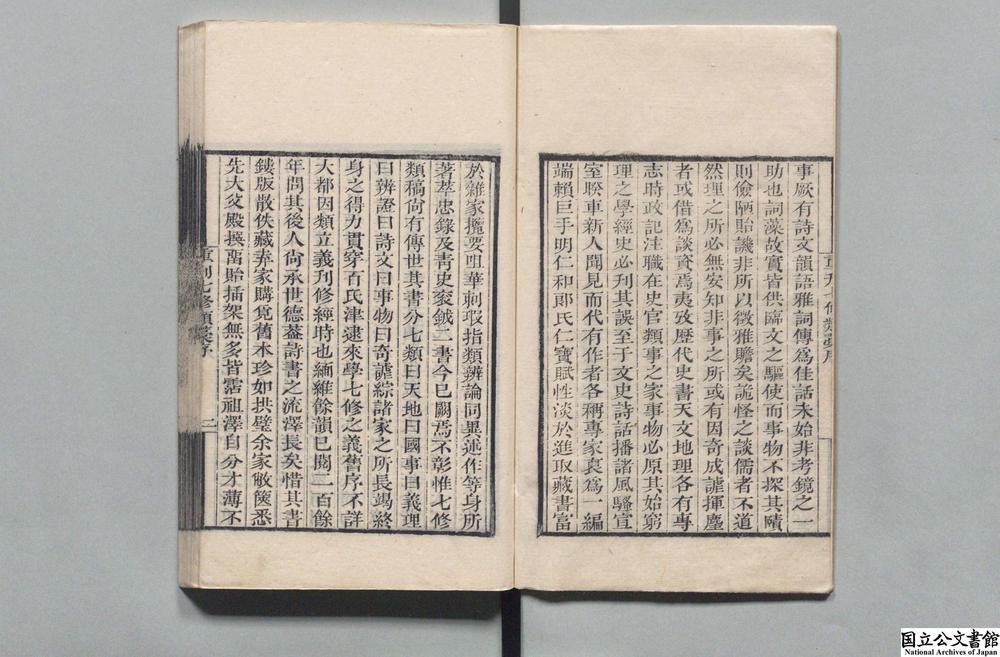 事厥有詩文韻語雅詞傳爲佳話未始非考鏡之一
助也詞藻故實皆供臨文之驅使而事物不探其賾
則儉陋貽譏非所以徵雅贍矣詭怪之談儒者不道
然理之所必無安知非事之所或有因奇成謔揮麈
者或借爲談資焉夷攷歷代史書天文地理各有專
志時政記注職在史官類事之家事物必原其始窮
理之學經史必刋其誤至于文史詩話播諸風騷宣
室睽車新人聞見而代有作者各稱專家裒爲一編
端賴巨手明仁和郎氏仁寶賦性淡於進取藏書富
重刋七修類藁序
於雜家攬要咀華刺瑕指類辨論同異述作等身所
著萃忠錄及青史衮鉞二書今已闕焉不彰惟七修
類稿尚有傳世其書分七類曰天地曰國事曰義理
曰辨證曰詩文曰事物曰奇謔綜諸家之所長竭終
身之得力貫穿百氏津逮來學七修之義舊序不詳
大都因類立義刋修經時也緬維餘韻已閱二百餘
年問其後人尚承世德葢詩書之流澤長矣惜其書
鏤版散佚藏弆家購覓舊本珍如拱璧余家敝篋悉
先大父殿撰畱貽插架無多皆霑祖澤自分才薄不
重刋七修類藁序
二
国立公文書館
National Archives of Japan